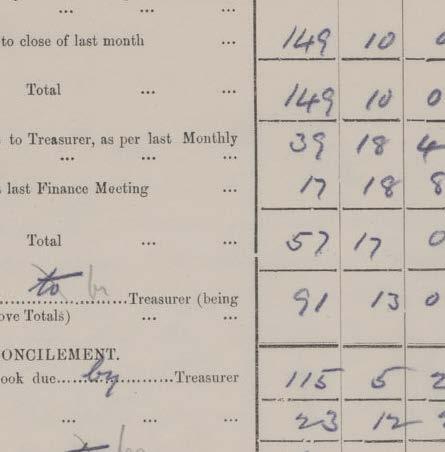 ... ... ...
to close of last month ... 149 10 0
Total ... ... 149 10 0
to Treasurer, as per last Monthly 39 18 4
... ... ...
last Finance Meeting ... 17 18 8
Total ... ... 57 17 0
to by
Treasurer (being 91 13 0
ove Totals) ... ...
ONCILEMENT.
ook due......by............Treasurer 115 5 2
... ... ... 23 12